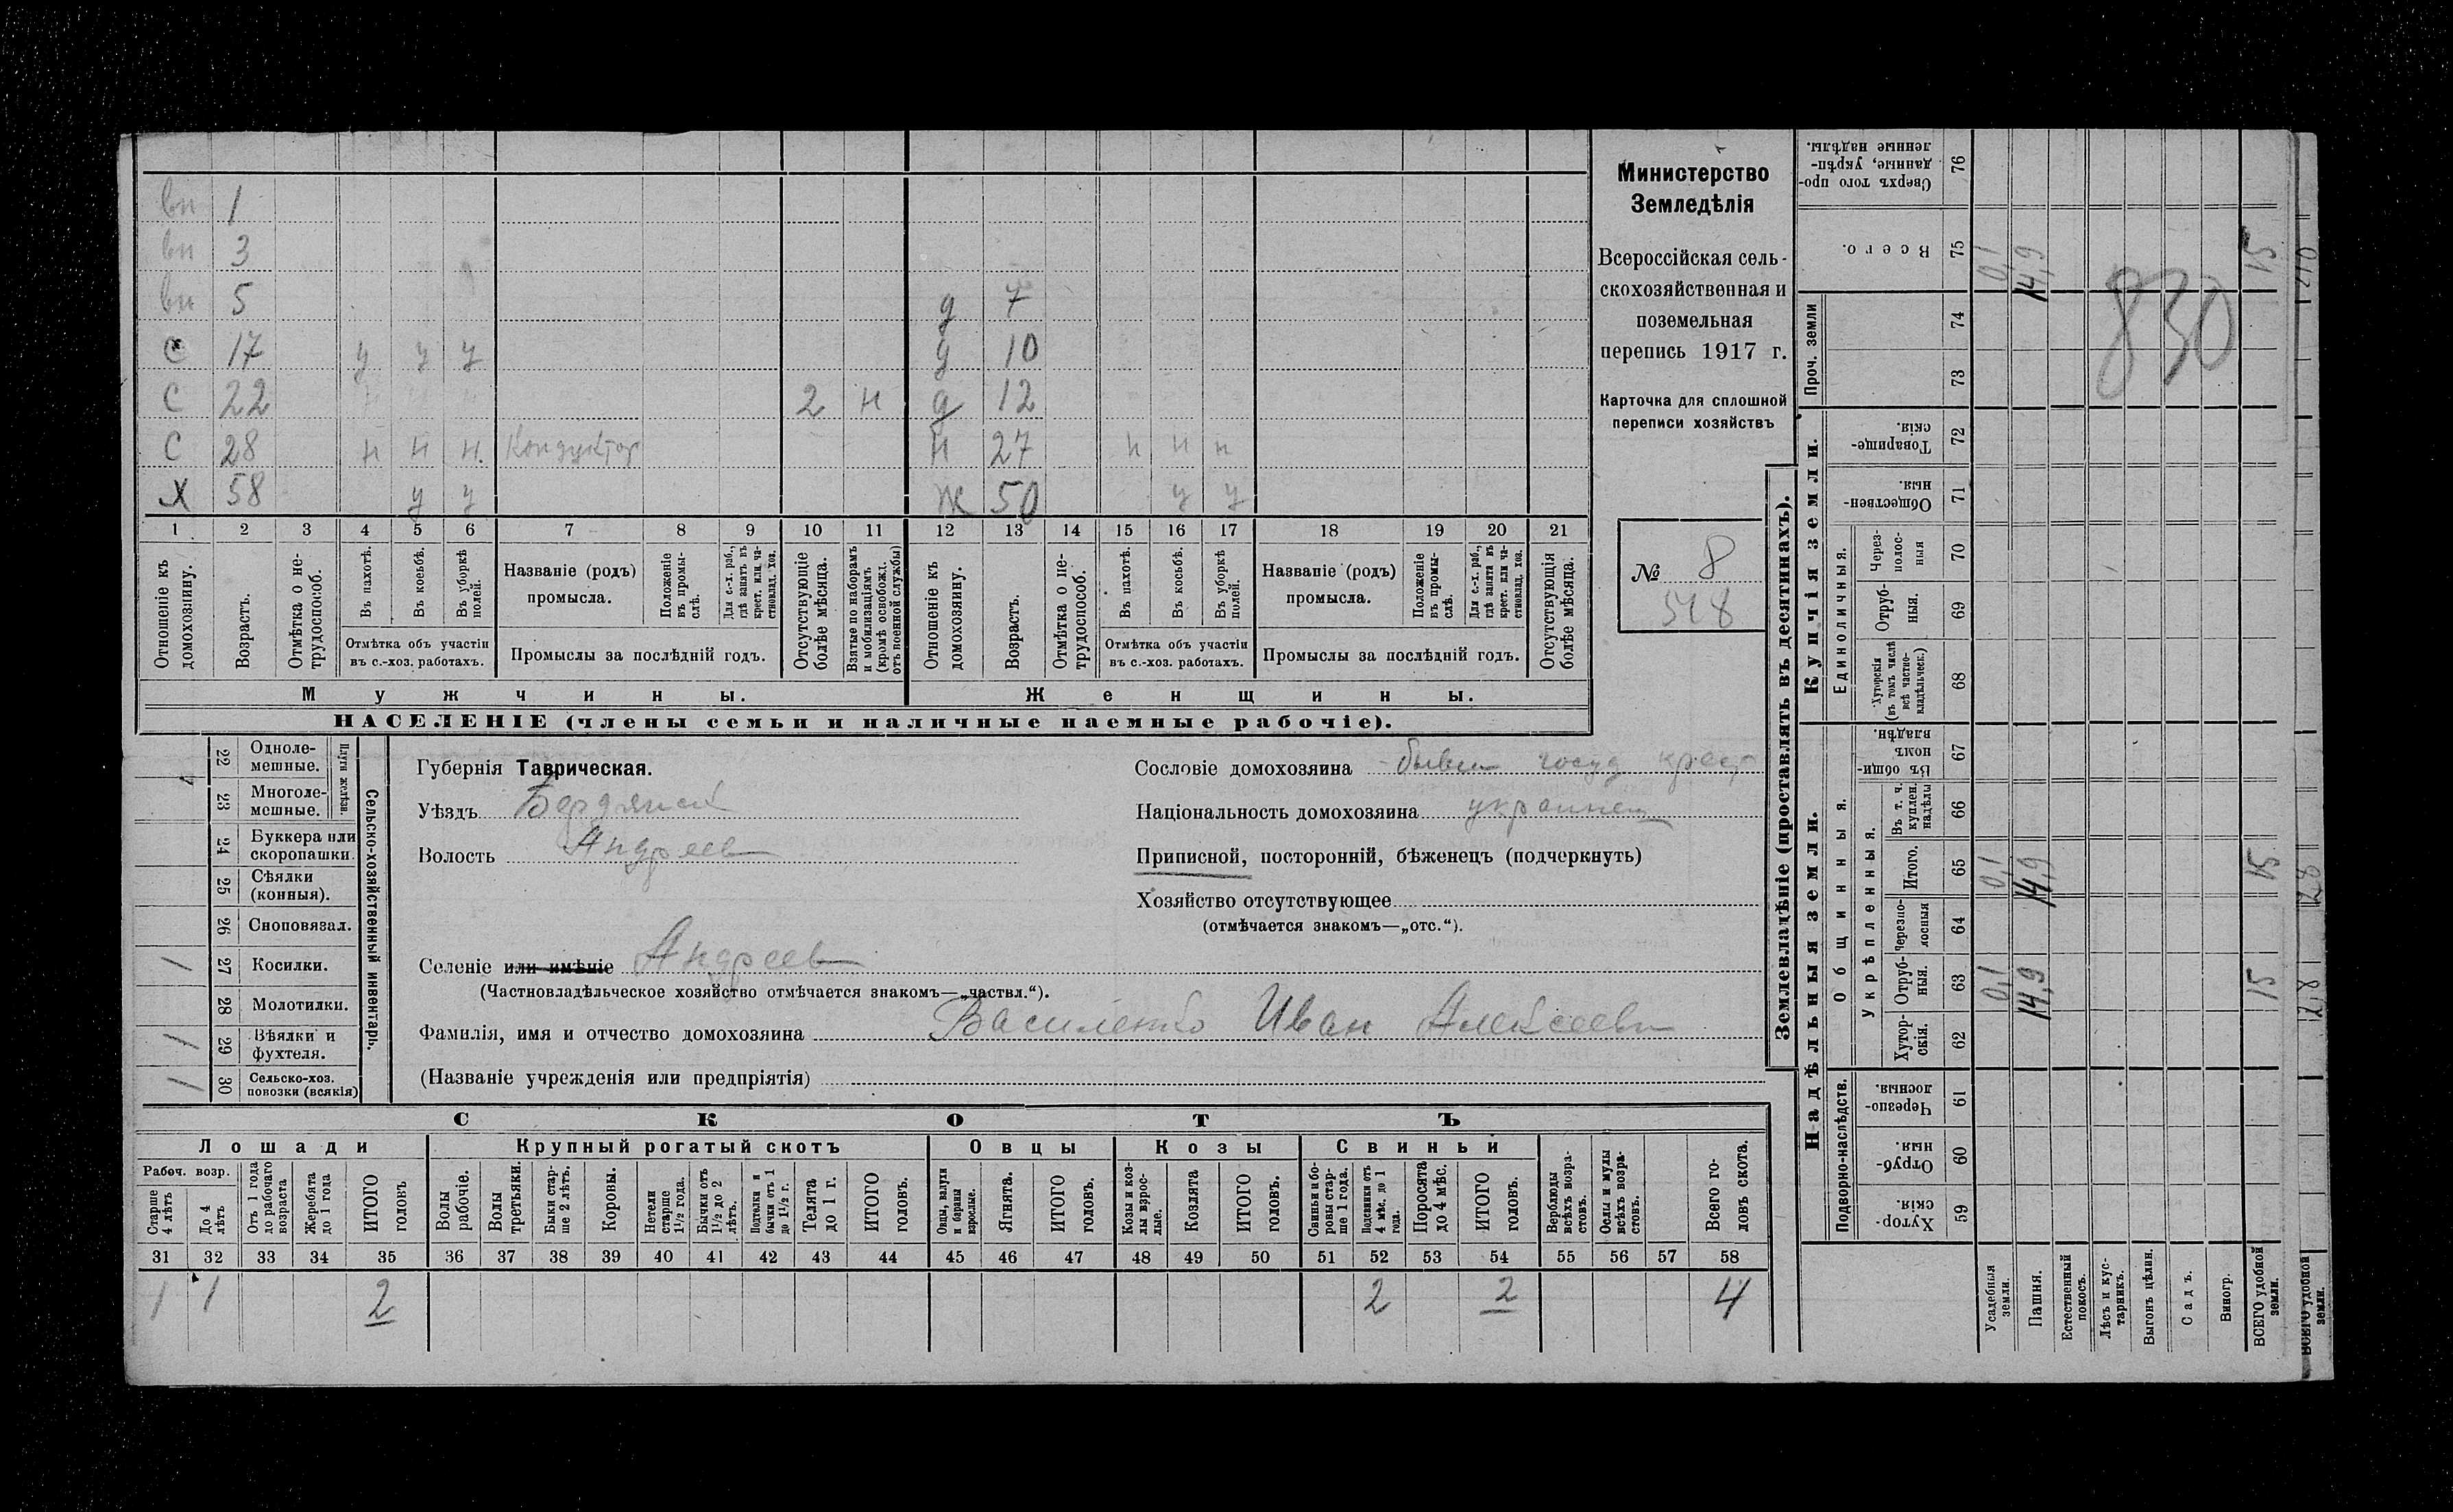 вн 1
вн 3
вн 5 д 7
С 17 у у у д 10
С 22 2 н д 12
С 28 н н н Кондуктор н 27 н н н
Х 58 у у ж 50 у у
1 2 3 4 5 6 7 8 9 10 11 12 13 14 15 16 17 18 19 20 21
Отношеніе къ домохозяину.
Возрастъ.
Отмѣтка о нетрудоспособ.
Въ пахотѣ.
Въ косьбѣ.
Въ уборкѣ полей.
Отмѣтка объ участіи въ с.-хоз. работахъ.
Названіе (родъ) промысла.
Положеніе въ промыслѣ.
Для с.-х. раб., гдѣ занятъ въ крест. или частновлад. хоз.
Промыслы за послѣдній годъ.
Отсутствующіе болѣе мѣсяца.
Взятые по наборамъ и мобилизаціямъ (кромѣ освобожд. отъ военной службы)
Отношеніе къ домохозяину.
Возрастъ.
Отмѣтка о нетрудоспособ.
Въ пахотѣ.
Въ косьбѣ.
Въ уборкѣ полей.
Отмѣтка объ участіи въ с.-хоз. работахъ.
Названіе (родъ) промысла.
Положеніе въ промыслѣ.
Для с.-х. раб., гдѣ занята въ крест. или частновлад. хоз.
Промыслы за послѣдній годъ.
Отсутствующія болѣе мѣсяца.
Мужчины. Женщины.
НАСЕЛЕНІЕ (члены семьи и наличные наемные рабочіе).
Министерство
Земледѣлія
Всероссійская сель-
скохозяйственная и
поземельная
перепись 1917 г.
Карточка для сплошной
переписи хозяйствъ
№ 8
518
Сельско-хозяйственный инвентарь.
Плуги желѣзн.
22 Одноле-
мешные.
23 Многоле-
мешные.
24 Буккера или
скоропашки.
25 Сѣялки
(конныя).
26 Сноповязал.
27 Косилки. 1
28 Молотилки.
29 Вѣялки и
фухтеля. 1
30 Сельско-хоз.
повозки (всякія) 1
Губернія Таврическая.
Уѣздъ Бердянский
Волость Андреев
Селеніе или имѣніе Андреев
(Частновладѣльческое хозяйство отмѣчается знакомъ—„частвл.“).
Фамилія, имя и отчество домохозяина Василенко Иван Алексеевич
(Названіе учрежденія или предпріятія)
Сословіе домохозяина бывш госуд крест
Національность домохозяина украинец
Приписной, посторонній, бѣженецъ (подчеркнуть)
Хозяйство отсутствующее
(отмѣчается знакомъ—„отс.“).
СКОТЪ
Лошади Крупный рогатый скотъ Овцы Козы Свиньи
Рабоч. возр.
Старше 4 лѣтъ
До 4 лѣтъ
Отъ 1 года до рабочаго возраста
Жеребята до 1 года
ИТОГО головъ
Волы рабочіе.
Волы третьяки.
Быки старше 2 лѣтъ.
Коровы.
Нетели старше 1½ года.
Бычки отъ 1½ до 2 лѣтъ.
Подтелки и бычки отъ 1 до 1½ г.
Телята до 1 г.
ИТОГО головъ.
Овцы, валухи и бараны взрослые.
Ягнята.
ИТОГО головъ.
Козы и козлы взрослые.
Козлята
ИТОГО головъ.
Свиньи и боровы старше 1 года.
Подсвинки отъ 4 мѣс. до 1 года.
Поросята до 4 мѣс.
ИТОГО головъ.
Верблюды всѣхъ возрастовъ.
Ослы и мулы всѣхъ возрастовъ.
Всего головъ скота.
31 32 33 34 35 36 37 38 39 40 41 42 43 44 45 46 47 48 49 50 51 52 53 54 55 56 57 58
1 1 2 2 2 4
Землевладѣніе (проставлять въ десятинахъ).
Сверхъ того проданные, укрѣпленные надѣлы. 76
Всего. 75 0,1 14,9 15
Проч. земли 74 73
830
Купчія земли.
Товарищескія. 72
Общественныя. 71
Единоличныя.
Черезполосныя 70
Отрубныя. 69
Хуторскія (въ томъ числѣ всѣ частновладѣльческ.) 68
Надѣльныя земли.
Общинныя.
Въ общинномъ владѣн. 67
Укрѣпленныя.
Въ т. ч. куплен. надѣлы 66
Итого. 65 0,1 14,9 15
Черезполосныя 64
Отрубныя. 63 0,1 14,9 15
Хуторскія. 62
Подворно-наслѣдств.
Черезполосныя. 61
Отрубныя. 60
Хуторскія. 59
Усадебныя земли.
Пашня.
Естественный покосъ.
Лѣсъ и кустарникъ.
Выгонъ цѣлин.
Садъ.
Виногр.
ВСЕГО удобной земли.
ВСЕГО удобной земли.